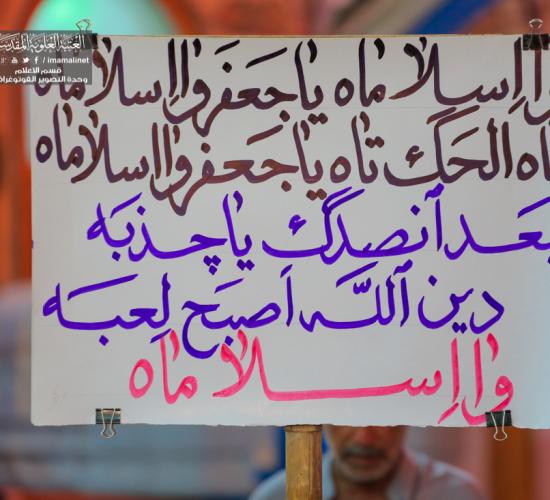 العتبة العلوية المقدسة
/ imamalinet
قسم الاعلام
وحدة التصوير الفوتوغرافي
وا اسلاماه يا جعفر وا اسلاماه
تاه الحگ تاه يا جعفر وا اسلاماه
بعد آنصدگ يا چذبه
دين الله اصبح لعبه
وا اسلاماه